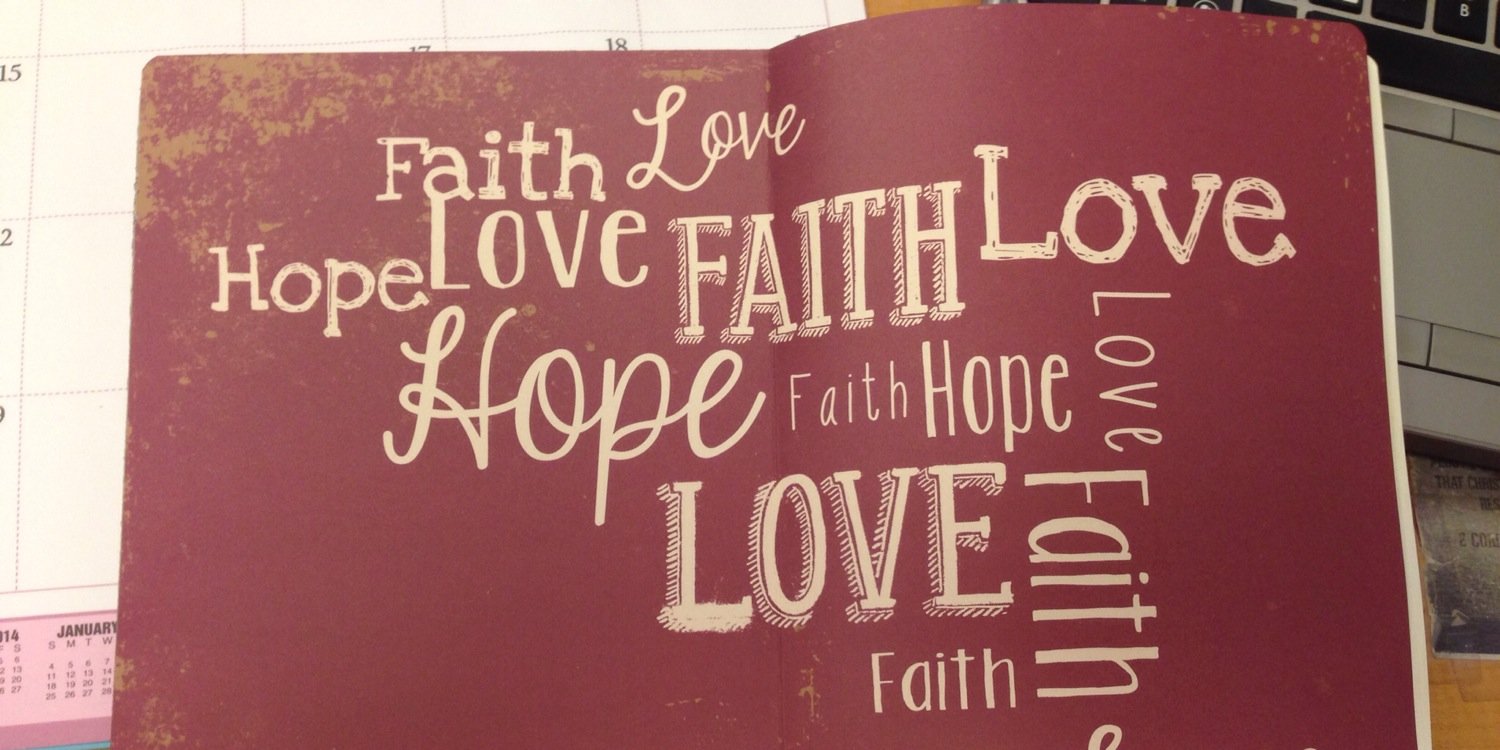 15
17
18
Faith Love
Love FAITH Love
Hope
Love
Hope Faith Hope
LOVE
Faith
Faith
JANUARY
S M T W
4 5 6 7
11 12 13 14
18 19 20 21
25 26 27 28
B
THAT CHRIS